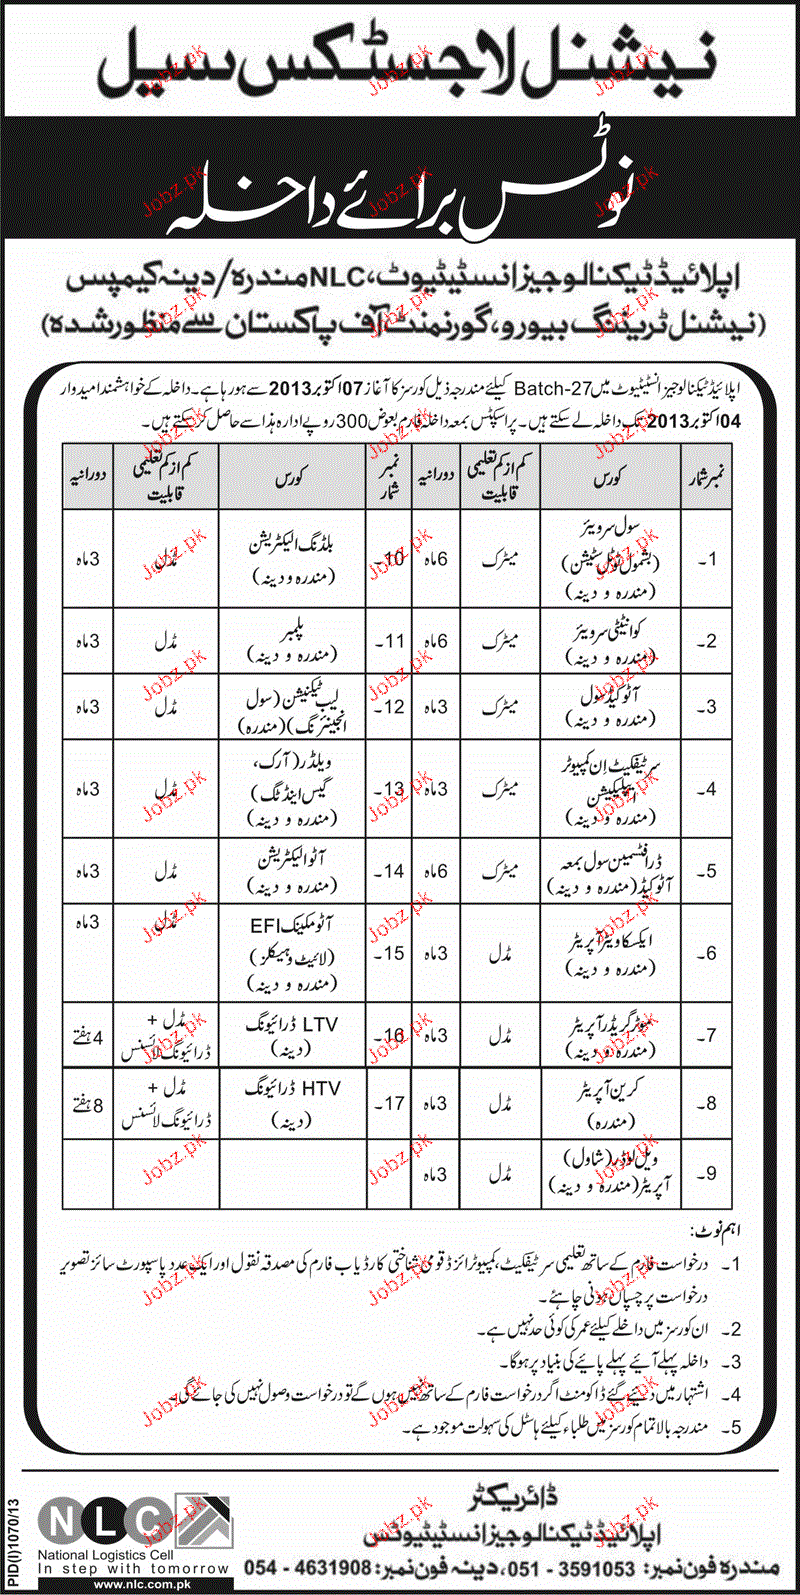 نیشنل لاجسٹکس سیل
نوٹس برائے داخلہ
اپلائیڈ ٹیکنالوجیز انسٹیٹیوٹ، NLC مندرہ/دینہ کیمپس
(نیشنل ٹریننگ بیورو، گورنمنٹ آف پاکستان سے منظور شدہ)
اپلائیڈ ٹیکنالوجیز انسٹیٹیوٹ میں Batch-27 کیلئے مندرجہ ذیل کورسز کا آغاز 07 اکتوبر 2013 سے ہو رہا ہے۔ داخلہ کے خواہشمند امیدوار
04 اکتوبر 2013 تک داخلہ لے سکتے ہیں۔ پراسپکٹس بمعہ داخلہ فارم بعوض 300 روپے ادارہ ہذا سے حاصل کر سکتے ہیں۔
نمبر شمار کورس کم از کم تعلیمی قابلیت دورانیہ نمبر شمار کورس کم از کم تعلیمی قابلیت دورانیہ
1۔ سول سرویئر (بشمول ٹوٹل سٹیشن) (مندرہ و دینہ) میٹرک 6 ماہ 10۔ بلڈنگ الیکٹریشن (مندرہ و دینہ) مڈل 3 ماہ
2۔ کوانٹیٹی سرویئر (مندرہ و دینہ) میٹرک 6 ماہ 11۔ پلمبر (مندرہ و دینہ) مڈل 3 ماہ
3۔ آٹو کیڈ سول (مندرہ و دینہ) میٹرک 3 ماہ 12۔ لیب ٹیکنیشن (سول انجینئرنگ) (مندرہ) مڈل 3 ماہ
4۔ سرٹیفکیٹ ان کمپیوٹر ایپلیکیشن (مندرہ و دینہ) میٹرک 3 ماہ 13۔ ویلڈر (آرک، گیس اینڈ ٹگ) (مندرہ و دینہ) مڈل 3 ماہ
5۔ ڈرافٹسمین سول بمعہ آٹو کیڈ (مندرہ و دینہ) میٹرک 6 ماہ 14۔ آٹو الیکٹریشن (مندرہ و دینہ) مڈل 3 ماہ
6۔ ایکسکاویٹر آپریٹر (مندرہ و دینہ) مڈل 3 ماہ 15۔ آٹو مکینک EFI (لائیٹ وہیکلز) (مندرہ و دینہ) مڈل 3 ماہ
7۔ موٹر گریڈر آپریٹر (مندرہ و دینہ) مڈل 3 ماہ 16۔ LTV ڈرائیونگ (دینہ) مڈل + ڈرائیونگ لائسنس 4 ہفتے
8۔ کرین آپریٹر (مندرہ) مڈل 3 ماہ 17۔ HTV ڈرائیونگ (دینہ) مڈل + ڈرائیونگ لائسنس 8 ہفتے
9۔ ویل لوڈر (شاول) آپریٹر (مندرہ و دینہ) مڈل 3 ماہ
اہم نوٹ:
1۔ درخواست فارم کے ساتھ تعلیمی سرٹیفکیٹ، کمپیوٹرائزڈ قومی شناختی کارڈ یا ب فارم کی مصدقہ نقول اور ایک عدد پاسپورٹ سائز تصویر
درخواست پر چسپاں ہونی چاہئے۔
2۔ ان کورسز میں داخلے کیلئے عمر کی کوئی حد نہیں ہے۔
3۔ داخلہ پہلے آئیے پہلے پائیے کی بنیاد پر ہوگا۔
4۔ اشتہار میں دیئے گئے ڈاکومنٹ اگر درخواست فارم کے ساتھ نہیں ہوں گے تو درخواست وصول نہیں کی جائے گی۔
5۔ مندرجہ بالا تمام کورسز میں طلباء کیلئے ہاسٹل کی سہولت موجود ہے۔
ڈائریکٹر
اپلائیڈ ٹیکنالوجیز انسٹیٹیوٹس
مندرہ فون نمبر: 051 - 3591053، دینہ فون نمبر: 054 - 4631908
NLC
National Logistics Cell
In step with tomorrow
www.nlc.com.pk
PID(I)1070/13
Jobz.pk